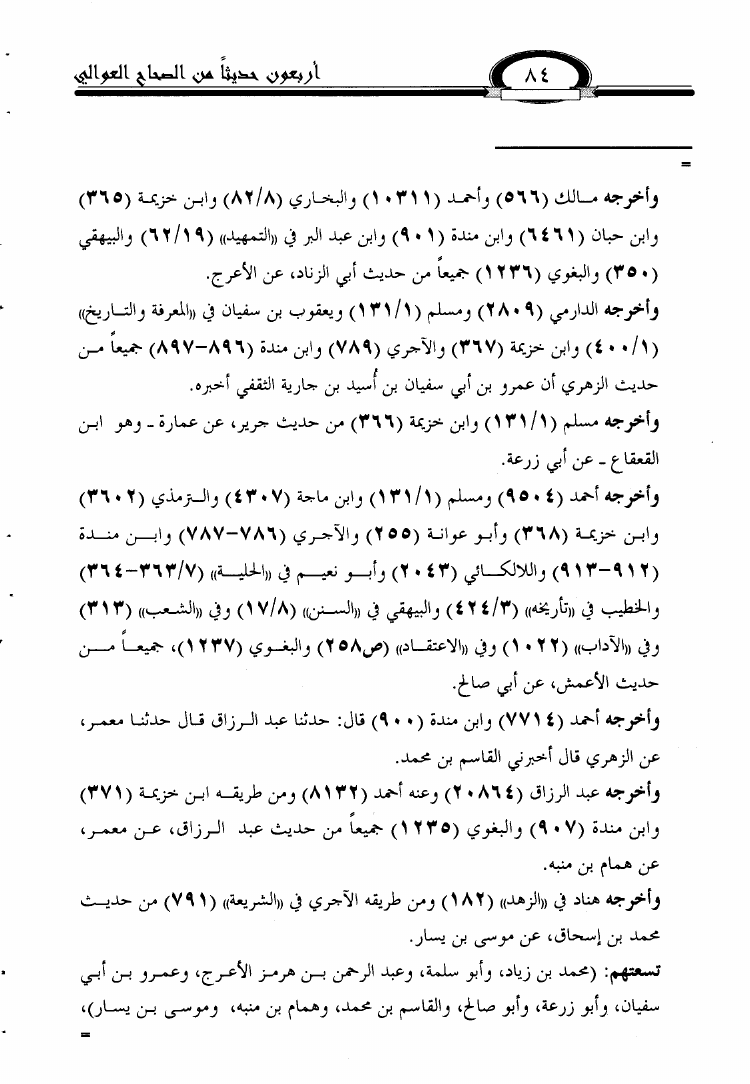 أربعون حديثاً من الصحاح العوالي
٨٤
=
وأخرجه مالك (٥٦٦) وأحمد (١٠٣١١) والبخاري (٨٢/٨) وابن خزيمة (٣٦٥)
وابن حبان (٦٤٦١) وابن مندة (٩٠١) وابن عبد البر في «التمهيد» (٦٢/١٩) والبيهقي
(٣٥٠) والبغوي (١٢٣٦) جميعاً من حديث أبي الزناد، عن الأعرج.
وأخرجه الدارمي (٢٨٠٩) ومسلم (١٣١/١) ويعقوب بن سفيان في «المعرفة والتاريخ»
(٤٠٠/١) وابن خزيمة (٣٦٧) والآجري (٧٨٩) وابن مندة (٨٩٦–٨٩٧) جميعاً من
حديث الزهري أن عمرو بن أبي سفيان بن أُسيد بن جارية الثقفي أخبره.
وأخرجه مسلم (١٣١/١) وابن خزيمة (٣٦٦) من حديث جرير، عن عمارة ـ وهو ابن
القعقاع ـ عن أبي زرعة.
وأخرجه أحمد (٩٥٠٤) ومسلم (١٣١/١) وابن ماجة (٤٣٠٧) والترمذي (٣٦٠٢)
وابن خزيمة (٣٦٨) وأبو عوانة (٢٥٥) والآجري (٧٨٦–٧٨٧) وابن مندة
(٩١٢–٩١٣) واللالكائي (٢٠٤٣) وأبو نعيم في «الحلية» (٣٦٣/٧–٣٦٤)
والخطيب في «تأريخه» (٤٢٤/٣) والبيهقي في «السنن» (١٧/٨) وفي «الشعب» (٣١٣)
وفي «الآداب» (١٠٢٢) وفي «الاعتقاد» (ص٢٥٨) والبغوي (١٢٣٧)، جميعاً من
حديث الأعمش، عن أبي صالح.
وأخرجه أحمد (٧٧١٤) وابن مندة (٩٠٠) قال: حدثنا عبد الرزاق قال حدثنا معمر،
عن الزهري قال أخبرني القاسم بن محمد.
وأخرجه عبد الرزاق (٢٠٨٦٤) وعنه أحمد (٨١٣٢) ومن طريقه ابن خزيمة (٣٧١)
وابن مندة (٩٠٧) والبغوي (١٢٣٥) جميعاً من حديث عبد الرزاق، عن معمر،
عن همام بن منبه.
وأخرجه هناد في «الزهد» (١٨٢) ومن طريقه الآجري في «الشريعة» (٧٩١) من حديث
محمد بن إسحاق، عن موسى بن يسار.
تسعتهم: (محمد بن زياد، وأبو سلمة، وعبد الرحمن بن هرمز الأعرج، وعمرو بن أبي
سفيان، وأبو زرعة، وأبو صالح، والقاسم بن محمد، وهمام بن منبه، وموسى بن يسار)،
=